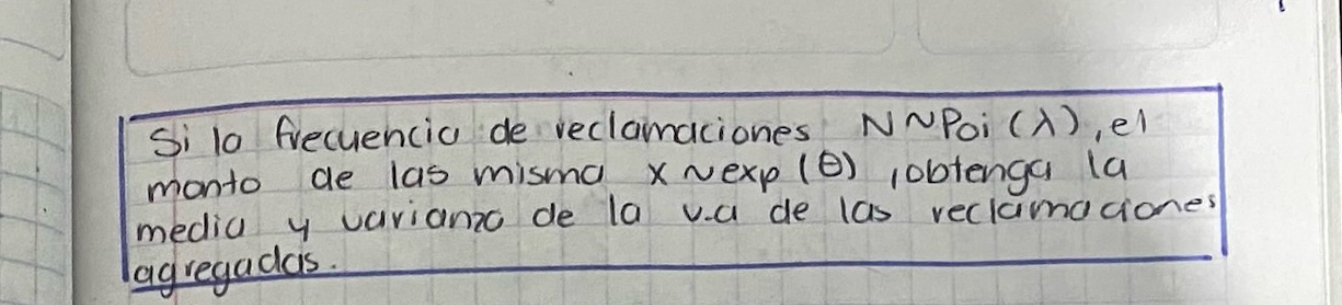 Si la frecuencia de reclamaciones N~Poi(λ), el
monto de las misma x~exp(θ), obtenga la
media y varianza de la v.a de las reclamaciones
agregadas.